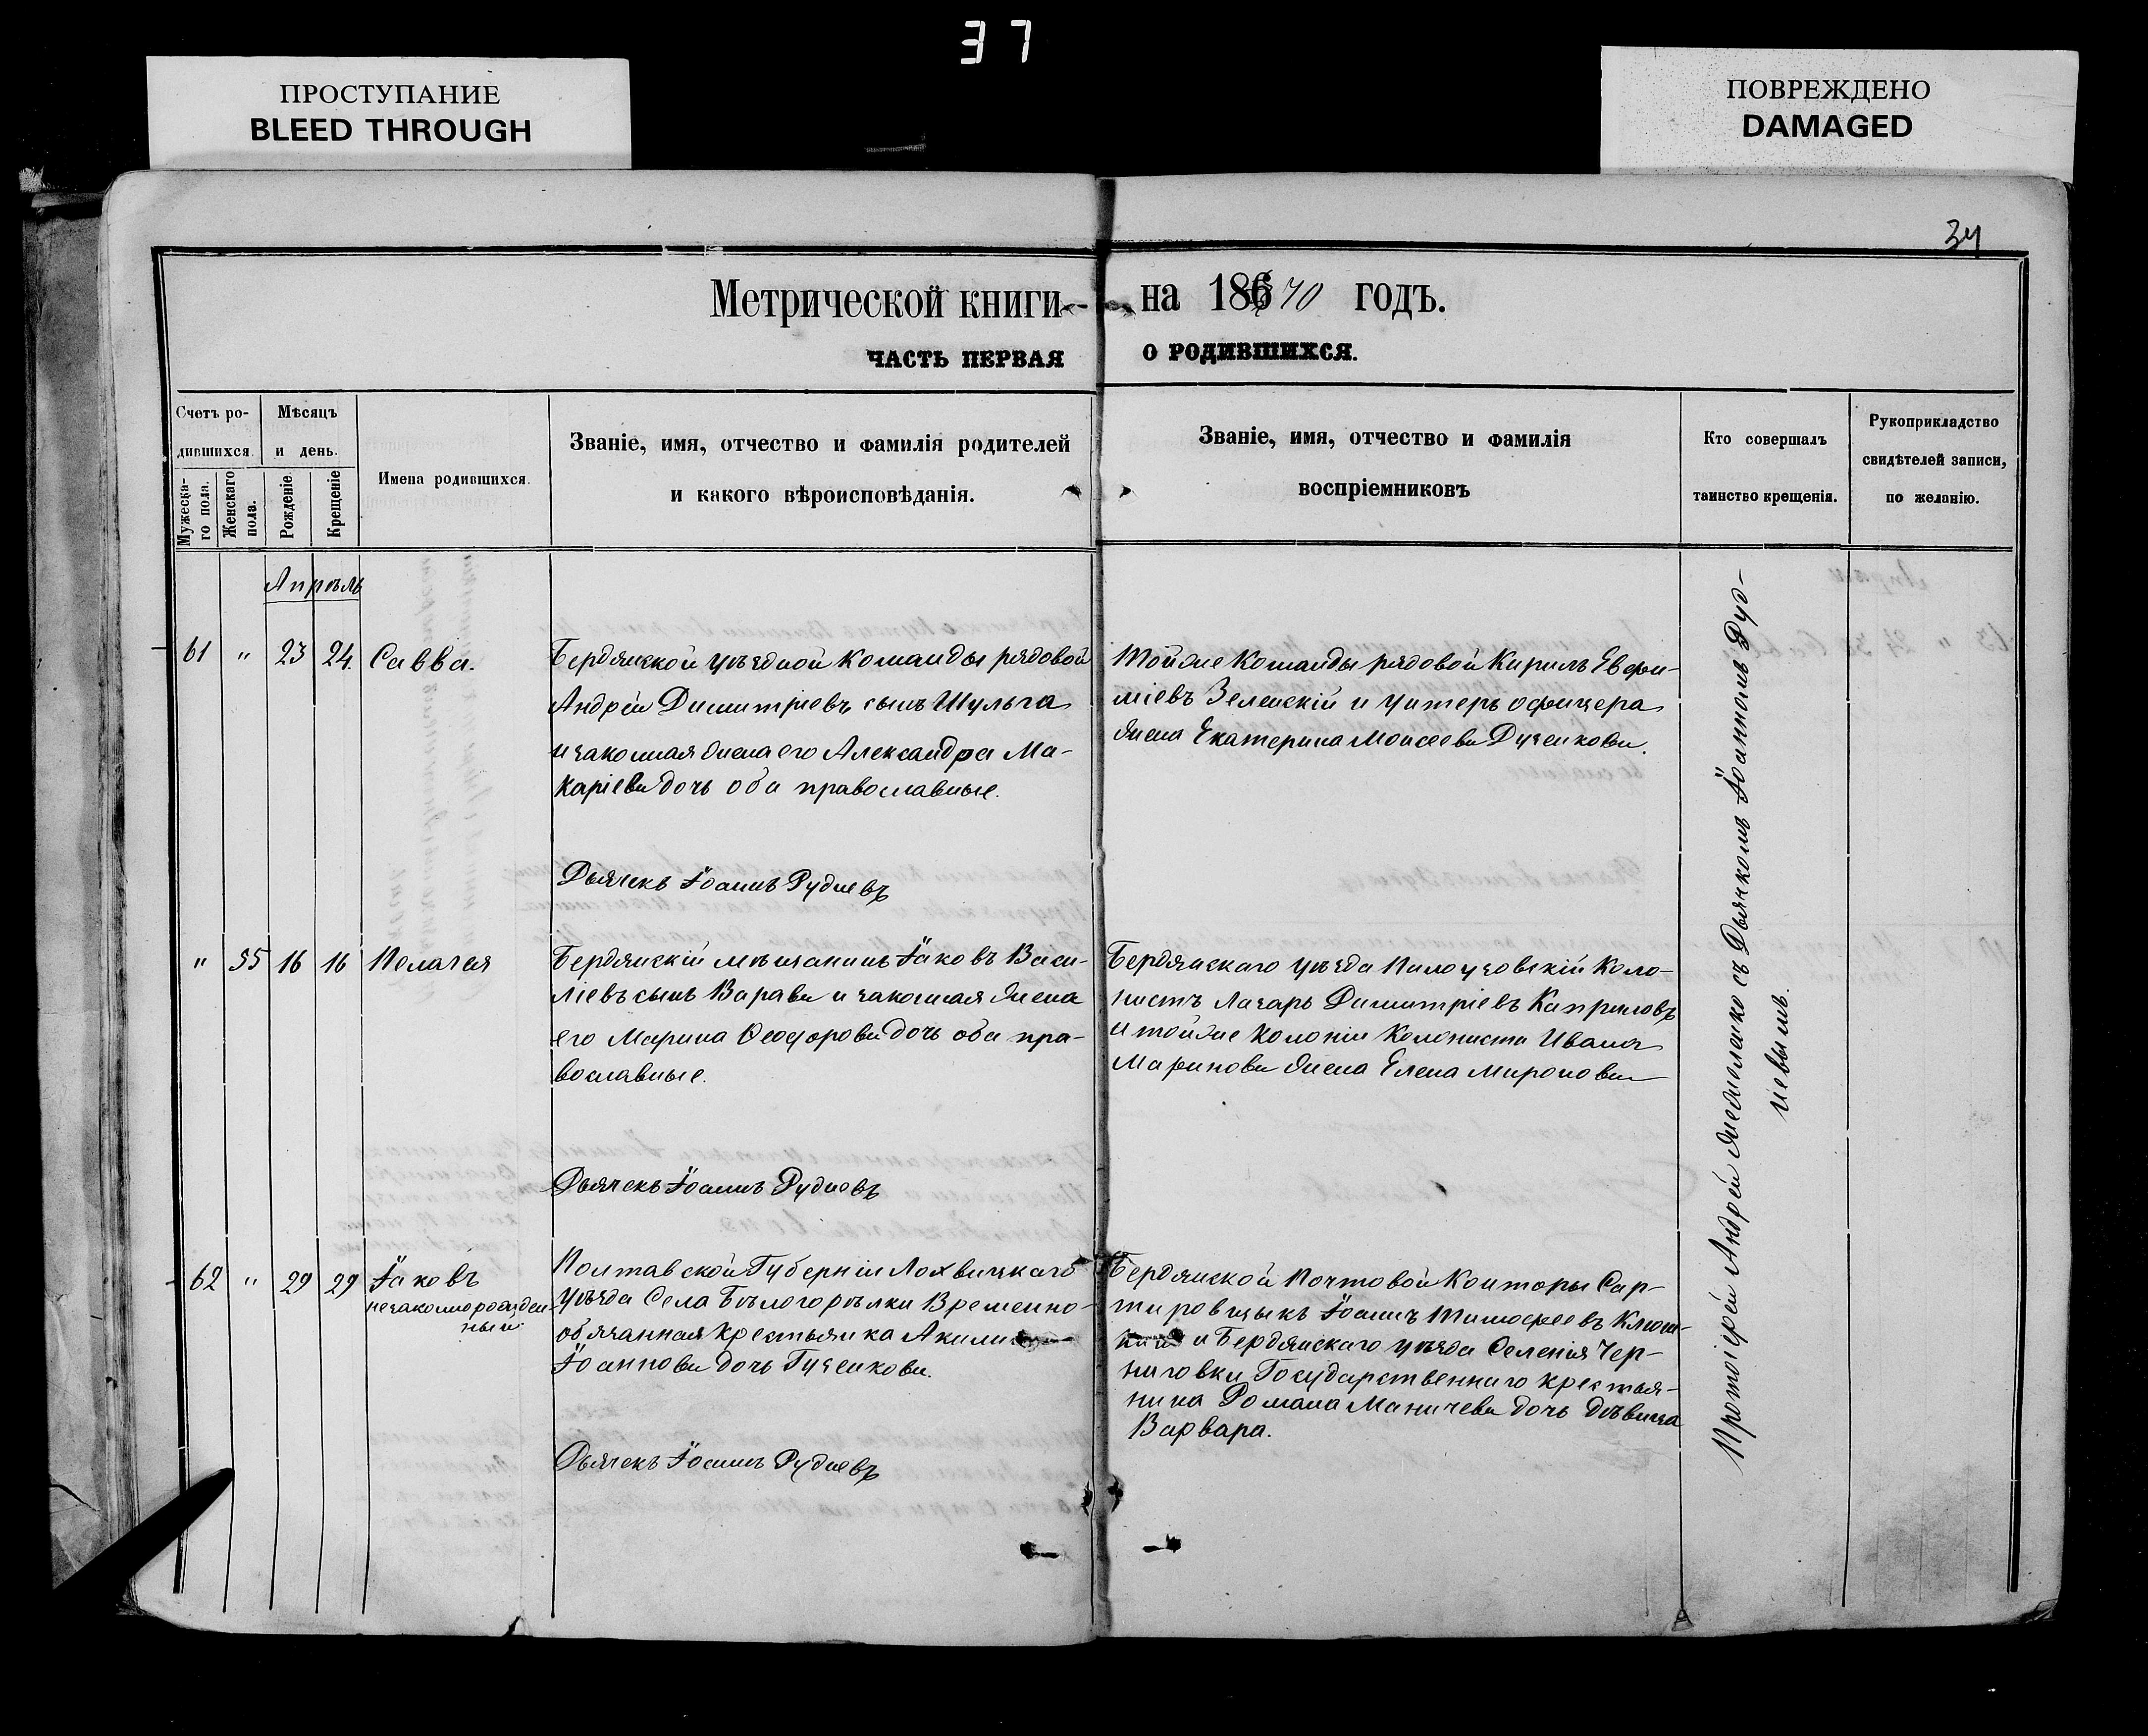 37
ПРОСТУПАНИЕ
BLEED THROUGH
ПОВРЕЖДЕНО
DAMAGED
34
Метрической книги на 186 70 годъ.
ЧАСТЬ ПЕРВАЯ О РОДИВШИХСЯ.
Счетъ ро-
дившихся.
Мужеска-
го пола.
Женскаго
пола.
Мѣсяцъ
и день.
Рожденіе.
Крещеніе
Имена родившихся.
Званіе, имя, отчество и фамилія родителей
и какого вѣроисповѣданія.
Званіе, имя, отчество и фамилія
воспріемниковъ
Кто совершалъ
таинство крещенія.
Рукоприкладство
свидѣтелей записи,
по желанію.
Апрѣль
61 " 23 24 Савва.
Бердянской уѣздной команды рядовой
Андрей Димитріевъ сынъ Шульга
и законная жена его Александра Ма-
каріева дочь оба православные.
Тойже команды рядовой Кирилъ Евфи-
міевъ Зеленскій и унтеръ офицера
жена Екатерина Моисеева Дученкова.
Дьячекъ Іоаннъ Рудневъ
" 55 16 16 Пелагея
Бердянскій мѣщанинъ Іаковъ Васи-
ліевъ сынъ Варава и законная жена
его Марина Ѳеодорова дочь оба пра-
вославные.
Бердянскаго уѣзда Коло-
нистъ Лазарь Димитріевъ Каприловъ
и тойже колоніи колониста Ивана
Маринова жена Елена Миронова
Дьячекъ Іоаннъ Рудневъ
62 " 29 29 Іаковъ
незаконнорожден-
ный.
Полтавской Губерніи Лохвицкаго
уѣзда Села Бѣлогорѣлки Временно-
обязанная крестьянка Акилина
Іоаннова дочь Гученкова.
Бердянской Почтовой Конторы Сор-
тировщикъ Іоаннъ Тимофеевъ
и Бердянскаго уѣзда Селенія Чер-
ниговки Государственнаго крестья-
нина Романа Маничева дочь дѣвица
Варвара.
Дьячекъ Іоаннъ Рудневъ
Протоіерей Андрей съ Дьячкомъ Іоанномъ Руд-
невымъ.